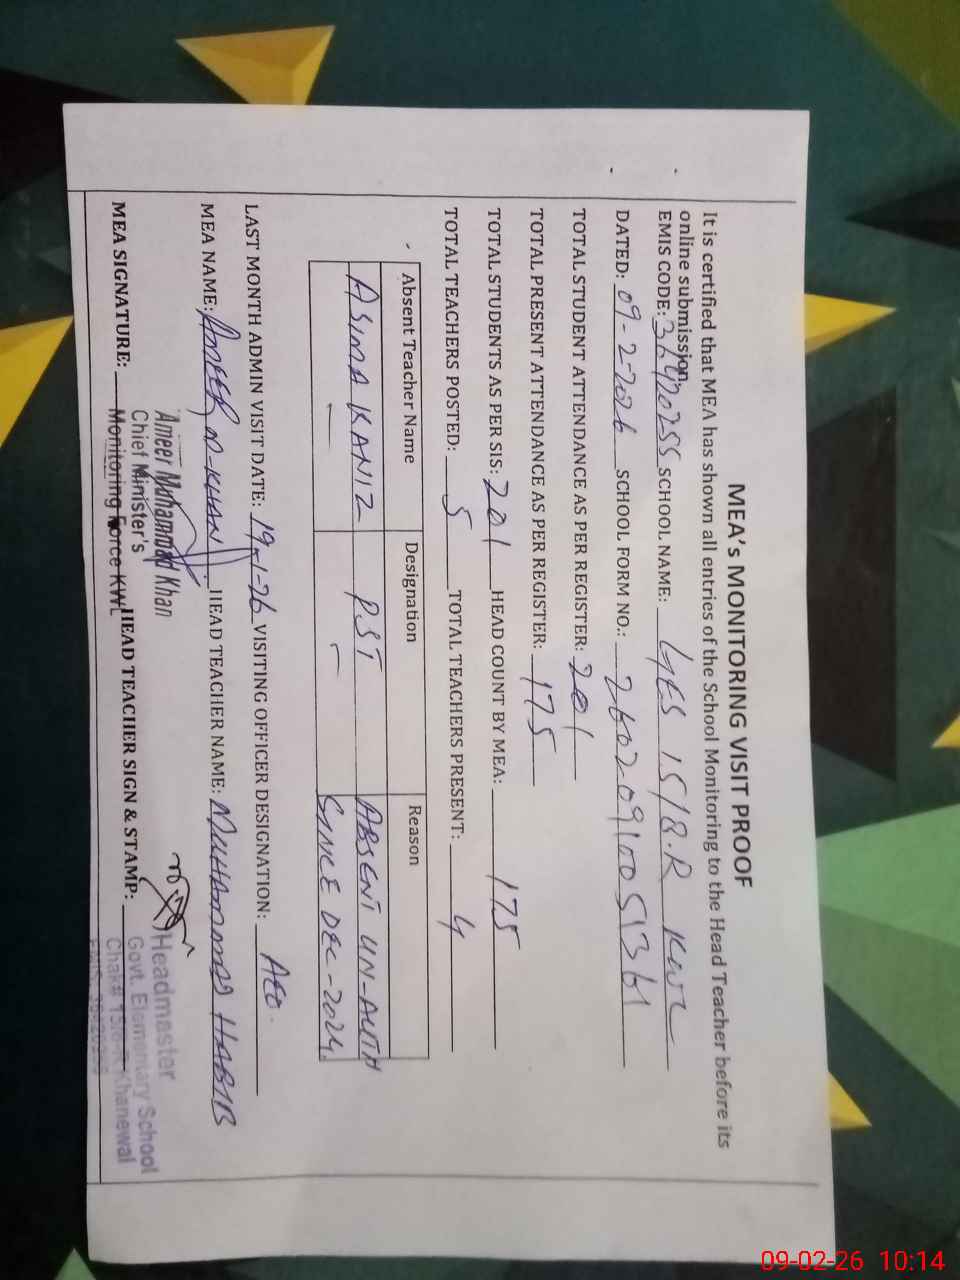 MEA's MONITORING VISIT PROOF
It is certified that MEA has shown all entries of the School Monitoring to the Head Teacher before its
online submission.
EMIS CODE: 36420255 SCHOOL NAME: GES 15/8.R KWL
DATED: 09-2-2026 SCHOOL FORM NO.: 26020910051361
TOTAL STUDENT ATTENDANCE AS PER REGISTER: 201
TOTAL PRESENT ATTENDANCE AS PER REGISTER: 175
TOTAL STUDENTS AS PER SIS: 201 HEAD COUNT BY MEA: 175
TOTAL TEACHERS POSTED: 5 TOTAL TEACHERS PRESENT: 4
Absent Teacher Name Designation Reason
ASIMA KANIZ P.ST ABSENT UN-AUTH
— — SINCE DEC-2024.
LAST MONTH ADMIN VISIT DATE: 19-1-26 VISITING OFFICER DESIGNATION: AEO.
MEA NAME: AMEER M-KHAN HEAD TEACHER NAME: MUHAMMAD HABIB
Ameer Muhammad Khan
Chief Minister's
Monitoring Force KWL
MEA SIGNATURE: HEAD TEACHER SIGN & STAMP:
Headmaster
Govt. Elementary School
Chak# 15/8-R Khanewal
09-02-26 10:14